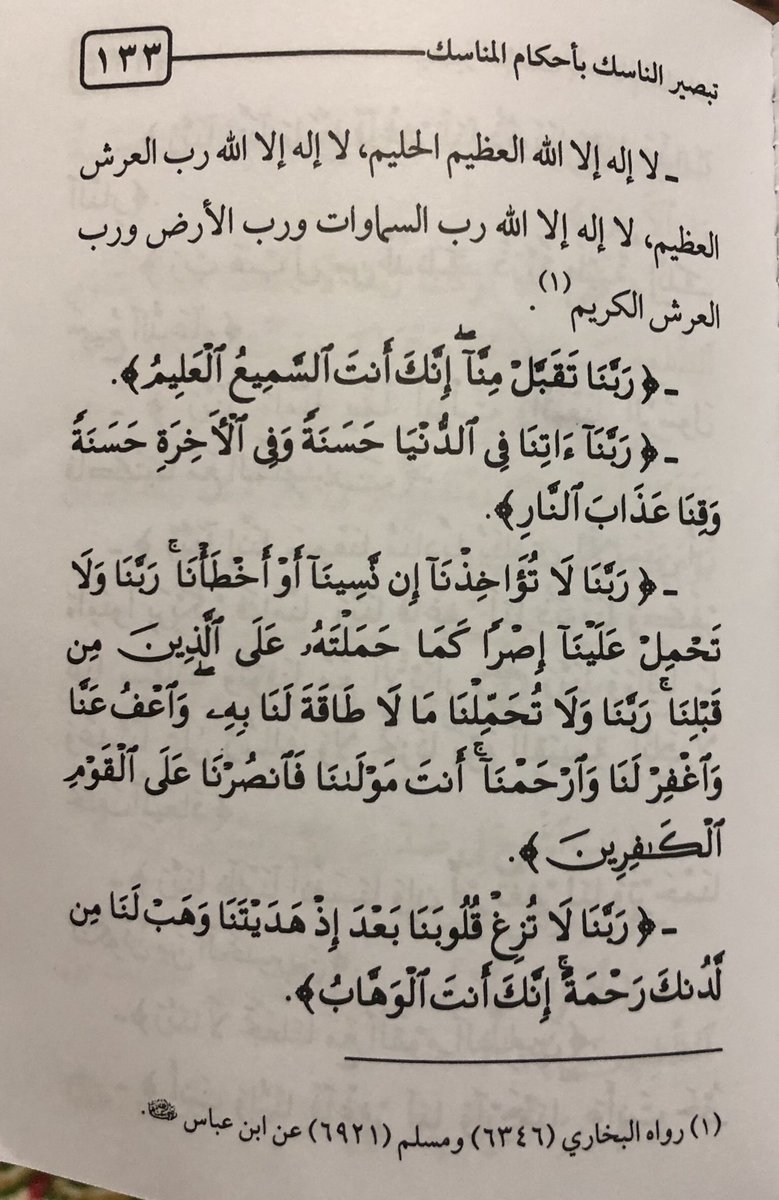 تبصير الناسك بأحكام المناسك ١٣٣
ـ لا إله إلا الله العظيم الحليم، لا إله إلا الله رب العرش
العظيم، لا إله إلا الله رب السماوات ورب الأرض ورب
العرش الكريم(١).
ـ ﴿رَبَّنَا تَقَبَّلْ مِنَّآ ۖ إِنَّكَ أَنتَ ٱلسَّمِيعُ ٱلْعَلِيمُ﴾.
ـ ﴿رَبَّنَآ ءَاتِنَا فِى ٱلدُّنْيَا حَسَنَةً وَفِى ٱلْأَخِرَةِ حَسَنَةً
وَقِنَا عَذَابَ ٱلنَّارِ﴾.
ـ ﴿رَبَّنَا لَا تُؤَاخِذْنَآ إِن نَّسِينَآ أَوْ أَخْطَأْنَا ۚ رَبَّنَا وَلَا
تَحْمِلْ عَلَيْنَآ إِصْرًا كَمَا حَمَلْتَهُۥ عَلَى ٱلَّذِينَ مِن
قَبْلِنَا ۚ رَبَّنَا وَلَا تُحَمِّلْنَا مَا لَا طَاقَةَ لَنَا بِهِۦ ۖ وَٱعْفُ عَنَّا
وَٱغْفِرْ لَنَا وَٱرْحَمْنَآ ۚ أَنتَ مَوْلَىٰنَا فَٱنصُرْنَا عَلَى ٱلْقَوْمِ
ٱلْكَٰفِرِينَ﴾.
ـ ﴿رَبَّنَا لَا تُزِغْ قُلُوبَنَا بَعْدَ إِذْ هَدَيْتَنَا وَهَبْ لَنَا مِن
لَّدُنكَ رَحْمَةً ۚ إِنَّكَ أَنتَ ٱلْوَهَّابُ﴾.
(١) رواه البخاري (٦٣٤٦) ومسلم (٦٩٢١) عن ابن عباس .